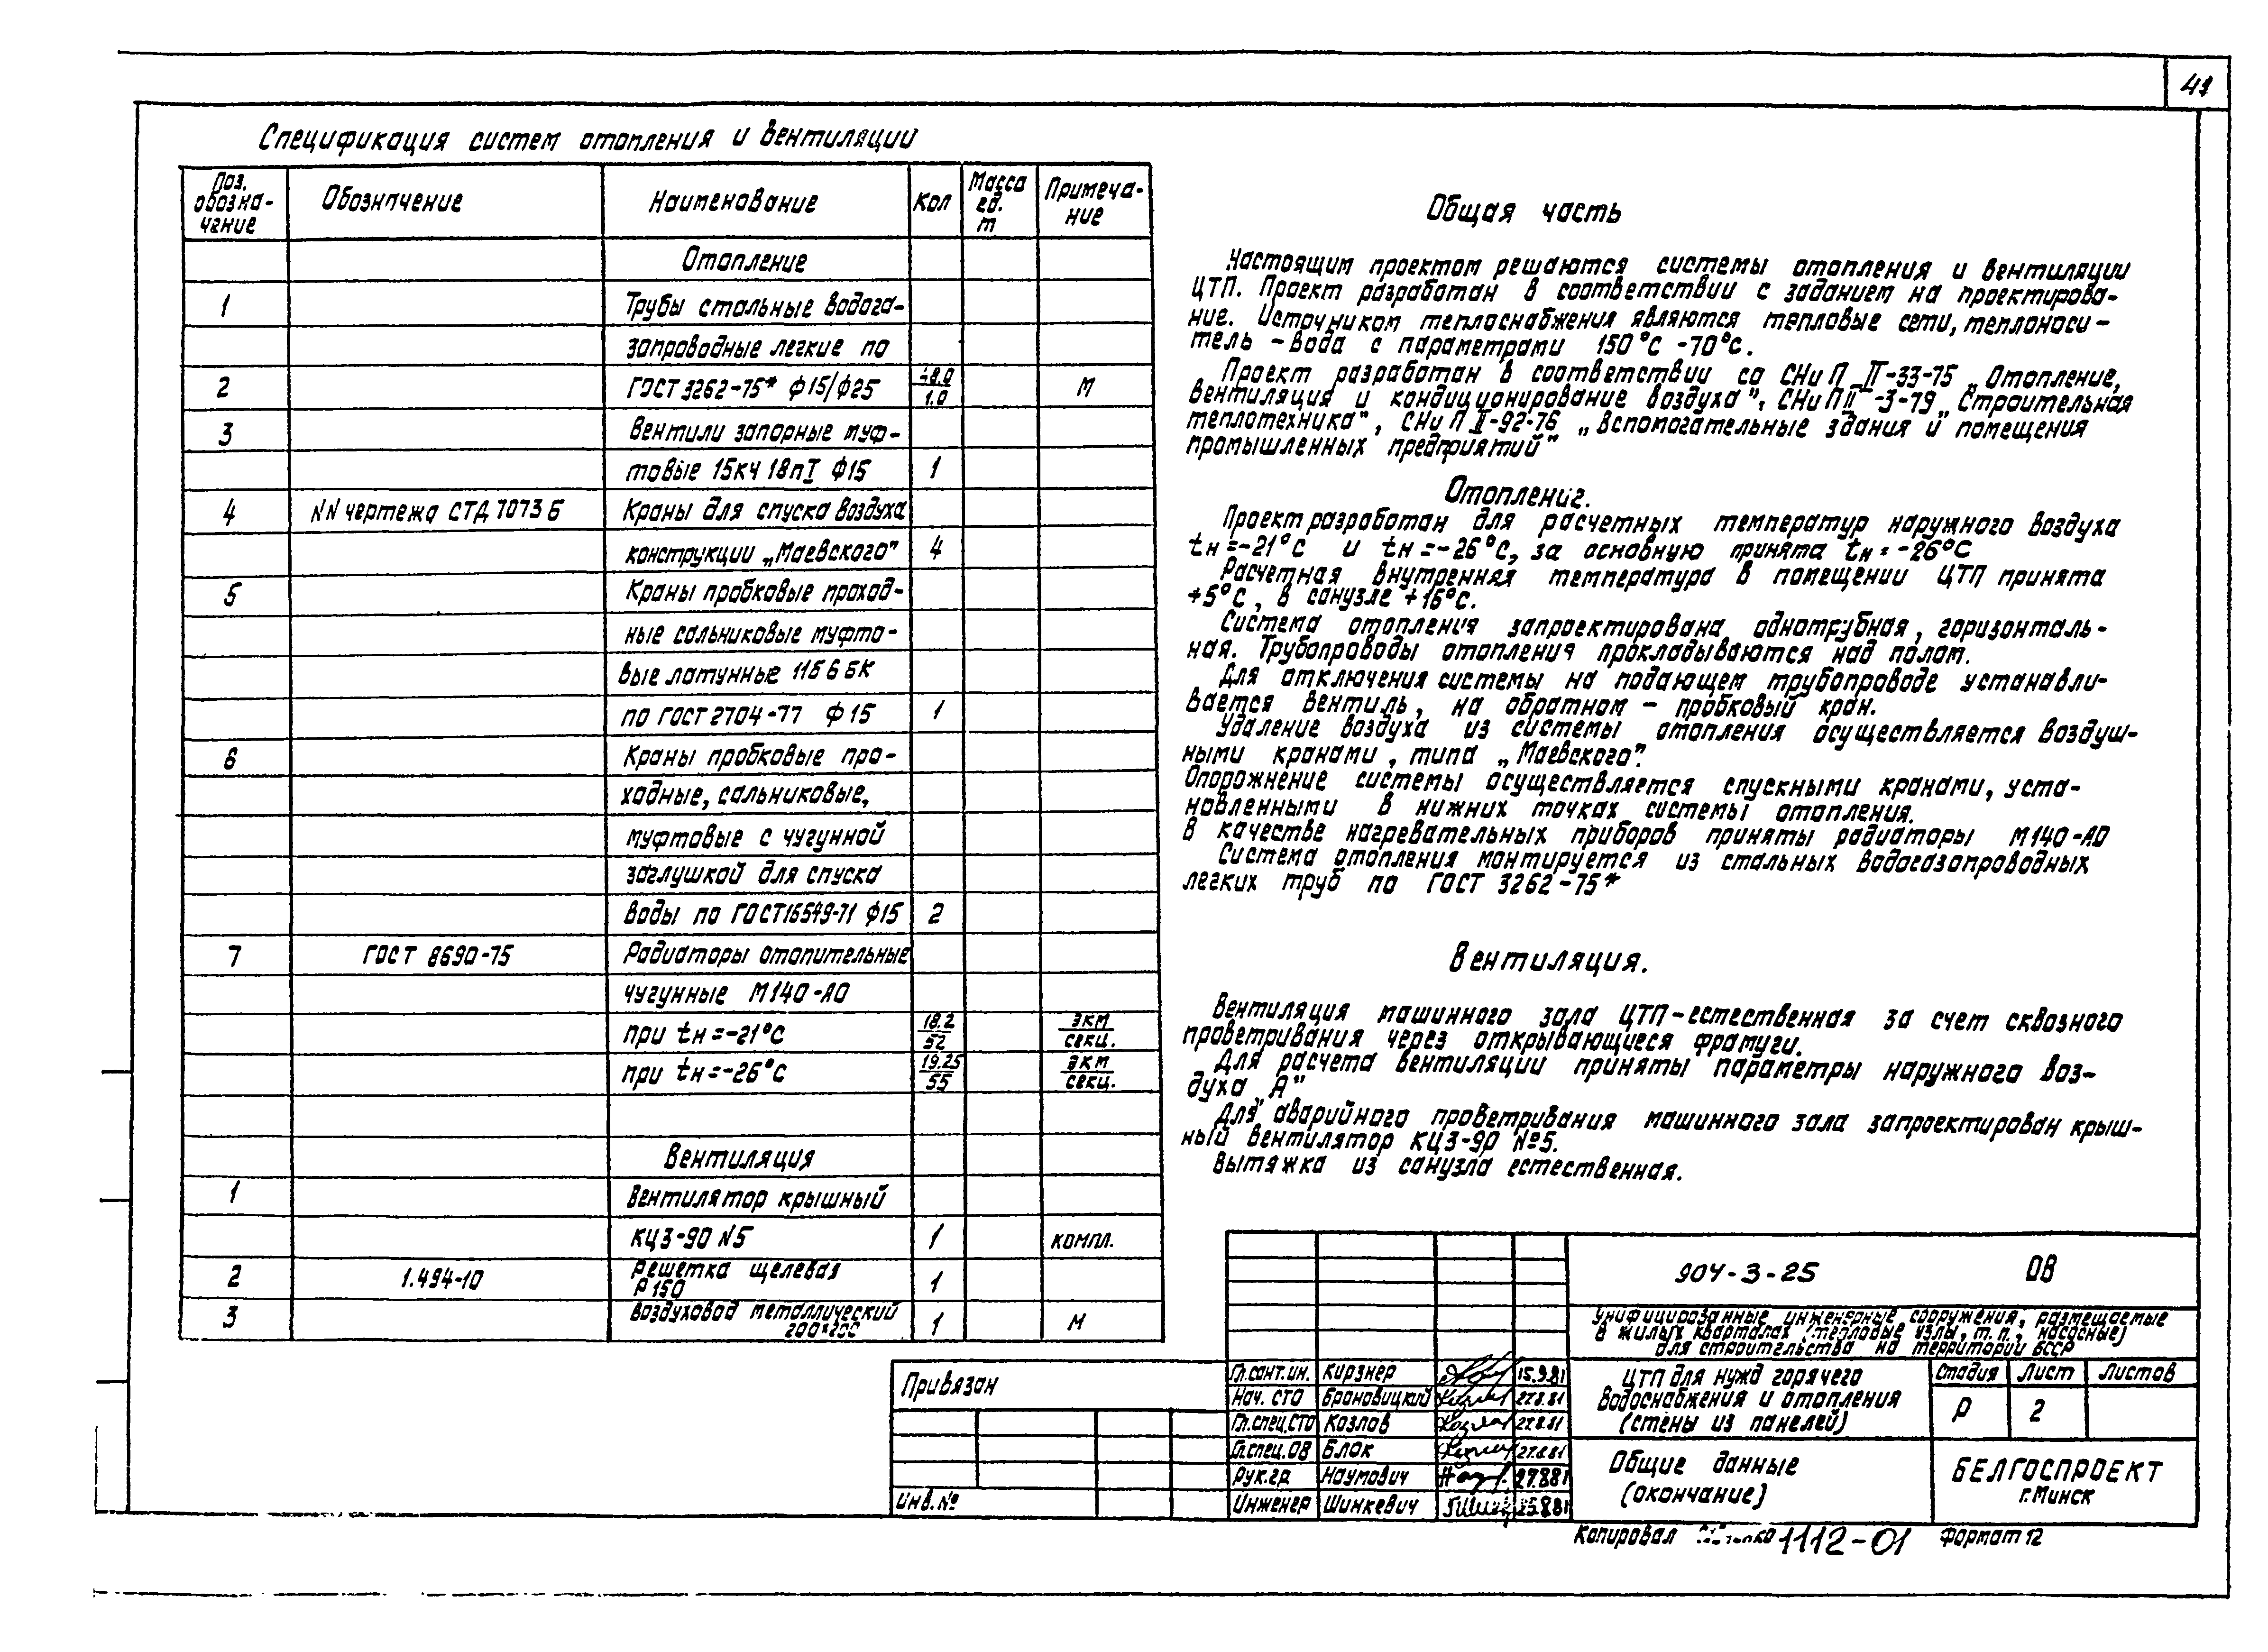 41
Спецификация систем отопления и вентиляции
Поз. обозна- чение Обозначение Наименование Кол Масса ед. т Примеча- ние
Отопление
1 Трубы стальные водога-
запроводные легкие по
2 ГОСТ 3262-75* ф15/ф25 48.0/1.0 М
3 Вентили запорные муф-
товые 15кч 18пI ф15 1
4 NN чертежа СТД 7073 Б Краны для спуска воздуха
конструкции „Маевского" 4
5 Краны пробковые проход-
ные сальниковые муфто-
вые латунные 11Б 6 БК
по ГОСТ 2704-77 ф 15 1
6 Краны пробковые про-
ходные, сальниковые,
муфтовые с чугунной
заглушкой для спуска
воды по ГОСТ 16549-71 ф15 2
7 ГОСТ 8690-75 Радиаторы отопительные
чугунные М140-АО
при tн=-21°С 18.2/52 экм/секц.
при tн=-26°С 19.25/55 экм/секц.
Вентиляция
1 Вентилятор крышный
КЦ3-90 N5 1 компл.
2 1.494-10 Решетка щелевая
Р150 1
3 Воздуховод металлический
200х200 1 М
Общая часть
Настоящим проектом решаются системы отопления и вентиляции
ЦТП. Проект разработан в соответствии с заданием на проектирова-
ние. Источником теплоснабжения являются тепловые сети, теплоноси-
тель - вода с параметрами 150°С -70°С.
Проект разработан в соответствии со СНиП II-33-75 „Отопление,
вентиляция и кондиционирование воздуха", СНиП II-3-79 „Строительная
теплотехника", СНиП II-92-76 „Вспомогательные здания и помещения
промышленных предприятий"
Отопление.
Проект разработан для расчетных температур наружного воздуха
tн=-21°С и tн=-26°С, за основную принята tн=-26°С
Расчетная внутренняя температура в помещении ЦТП принята
+5°С, в санузле +16°С.
Система отопления запроектирована однотрубная, горизонталь-
ная. Трубопроводы отопления прокладываются над полом.
Для отключения системы на подающем трубопроводе устанавли-
вается вентиль, на обратном - пробковый кран.
Удаление воздуха из системы отопления осуществляется воздуш-
ными кранами, типа „Маевского".
Опорожнение системы осуществляется спускными кранами, уста-
новленными в нижних точках системы отопления.
В качестве нагревательных приборов приняты радиаторы М140-АО
Система отопления монтируется из стальных водогазопроводных
легких труб по ГОСТ 3262-75*
Вентиляция.
Вентиляция машинного зала ЦТП-естественная за счет сквозного
проветривания через открывающиеся фрамуги.
Для расчета вентиляции приняты параметры наружного воз-
духа „А"
Для аварийного проветривания машинного зала запроектирован крыш-
ный вентилятор КЦ3-90 №5.
Вытяжка из санузла естественная.
904-3-25 ОВ
Унифицированные инженерные сооружения, размещаемые
в жилых кварталах (тепловые узлы, т.п., насосные)
для строительства на территории БССР
Гл.сант.ин. Кирзнер 15.9.81
Нач. СТО Броновицкий 27.8.81
Гл.спец.СТО Козлов 27.8.81
Гл.спец.ОВ Блок 27.8.81
Рук.гр Наумович 27.8.81
Инженер Шинкевич 25.8.81
ЦТП для нужд горячего
водоснабжения и отопления
(стены из панелей)
Стадия Лист Листов
Р 2
Общие данные
(окончание)
БЕЛГОСПРОЕКТ
г.Минск
Привязан
Инв.№
Копировал 1112-01 Формат 12